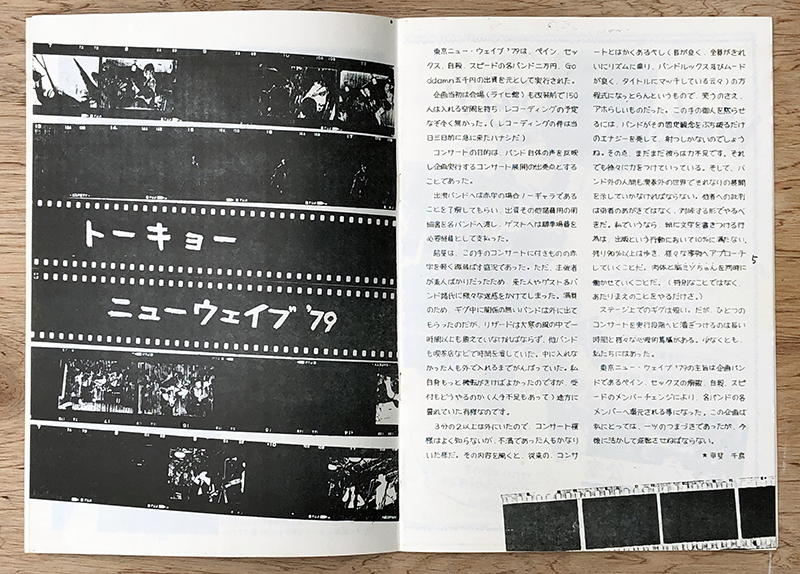 トーキョー
ニューウェイブ '79
東京ニュー・ウェイブ '79は、ペイン、セッ
クス、自殺、スピードの各バンド二万円、Go
ddamn五千円の出資を元として実行された。
企画当初は会場(ライヒ館)も改装前で150
人は入れる空間を持ち、レコーディングの予定
なぞ全く無かった。(レコーディングの件は当
日三日前に急に来たハナシだ)
コンサートの目的は、バンド自体の声を反映
し企画実行するコンサート展開の出発点とする
ことであった。
出演バンドへは赤字の場合ノーギャラである
ことを了解してもらい、出資その他諸費用の明
細書を各バンドへ渡し、ゲストへは標準場費を
必要経費として支払った。
結果は、この手のコンサートに付きものの赤
字を軽く蹴飛ばす盛況であった。ただ、主催者
が素人ばかりだったため、来た人やゲスト各バ
ンド諸氏に様々な迷惑をかけてしまった。満員
のため、ギグ中に関係の無いバンドは外に出て
もらったのだが、リザードは大寒の風の中で一
時間以上も震えていなければならず、他バンド
も喫茶店などで時間を潰していた。中に入れな
かった人も外で入れるまでがんばっていた。私
自身もっと機転がきけばよかったのですが、受
付もどうやるのか(人手不足もあって)途方に
暮れていた有様なのです。
3分の2以上は外にいたので、コンサート模
様はよく知らないが、不満であった人もかなり
いた様だ。その内容を聞くと、従来の、コンサ
ートとはかくあるべし(音が良く、全員がきれ
いにリズムに乗り、バンドルックス及びムード
が良く、タイトルにマッチしている云々)の方
程式になっとらんというもので、笑うのさえ、
アホらしいものだった。この手の御人を黙らせ
るには、バンドがその固定観念をぶち破るだけ
のエナジーを発して、射つしかないのでしょう
ね。その点、まだまだ彼らは力不足です。それ
でも徐々に力をつけていっている。そして、バ
ンド外の人間も演奏外の世界でそれなりの展開
を示していかなければならない。他者への批判
は弱者のあがきではなく、対峙する形でやるべ
きだ。私でいうなら、紙に文字を書きつける行
為は、出版という行動において10%に満たない。
残り90%以上は歩き、様々な事物へアプローチ
していくことだ。肉体と脳ミソちゃんを同時に
働かせていくことだ。(特別なことではなく、
あたりまえのことをやるだけさ。)
ステージ上でのギグは短い。だが、ひとつの
コンサートを実行段階へと漕ぎつけるのは長い
時間と様々な心理的葛藤がある。少なくとも、
私たちにはあった。
東京ニュー・ウェイブ '79の主旨は企画バン
ドであるペイン、セックスの解散、自殺、スピ
ードのメンバーチェンジにより、各バンドの各
メンバーへ還元される事になった。この企画は
私にとっては、一ツのつまづきであったが、今
後に活かして逆転させねばならない。
* 甲斐 千鳥
5